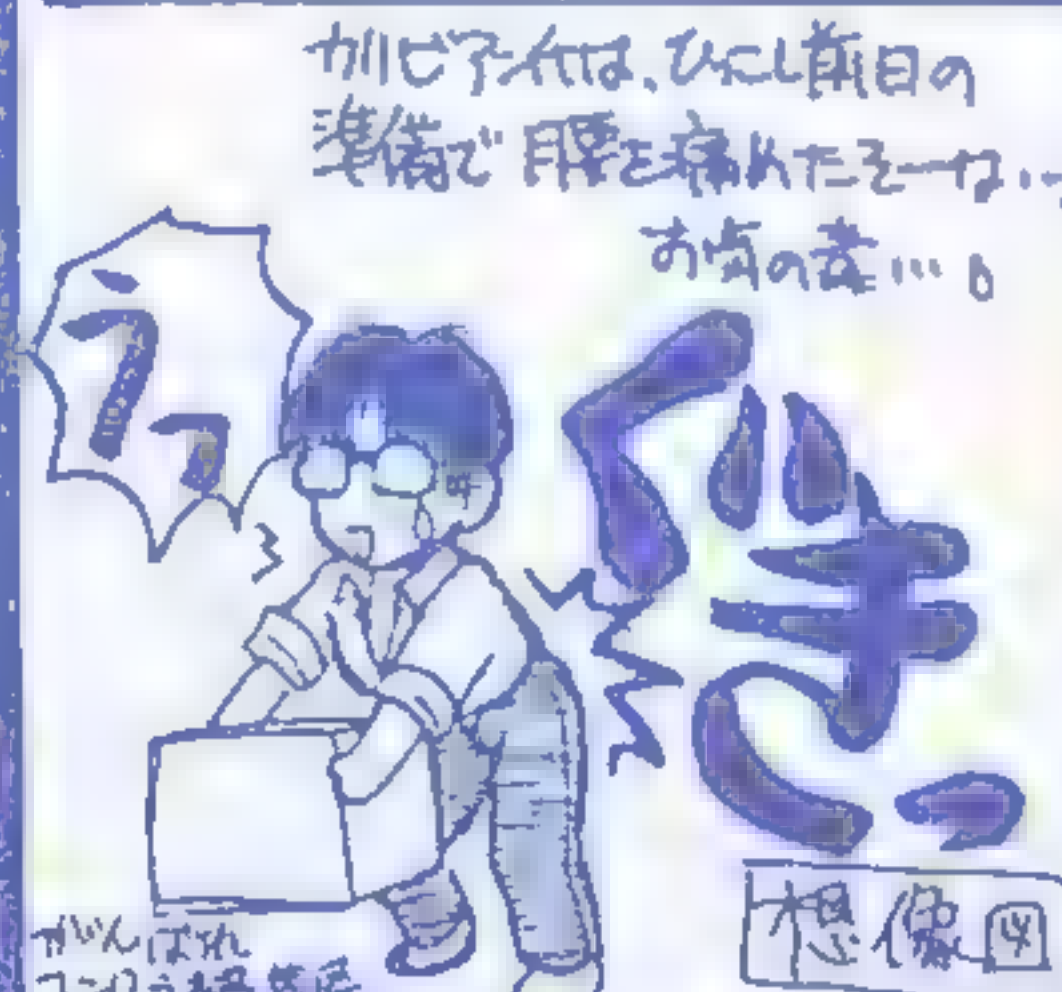 は、ひっこし前日の
準備で腰を痛めたそーな…
お気の毒…
うっ
ぐきっ
想像図
がんばれ